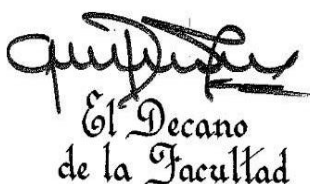 El Decano
de la Facultad